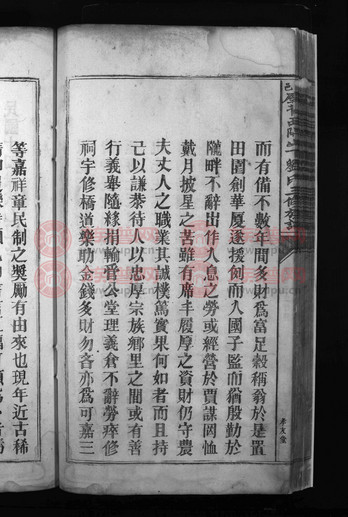 而有備不數年間多財爲富足穀稱翁於是置
田園創華厦遂援例而入國子監而猶殷勤於
隴畔不辭出作入息之勞或經營於賈謀罔恤
戴月披星之苦雖有席丰履厚之資財仍守農
夫丈人之職業其誠樸篤實果何如者而且持
己以謙恭待人以忠厚宗族鄉里之間或有善
行義舉隨緣捐輸管公堂理義倉不辭勞瘁修
祠宇修橋道樂助金錢多財勿吝亦爲可嘉三
等嘉祥章民制之獎勵有由來也現年近古稀
孝友堂